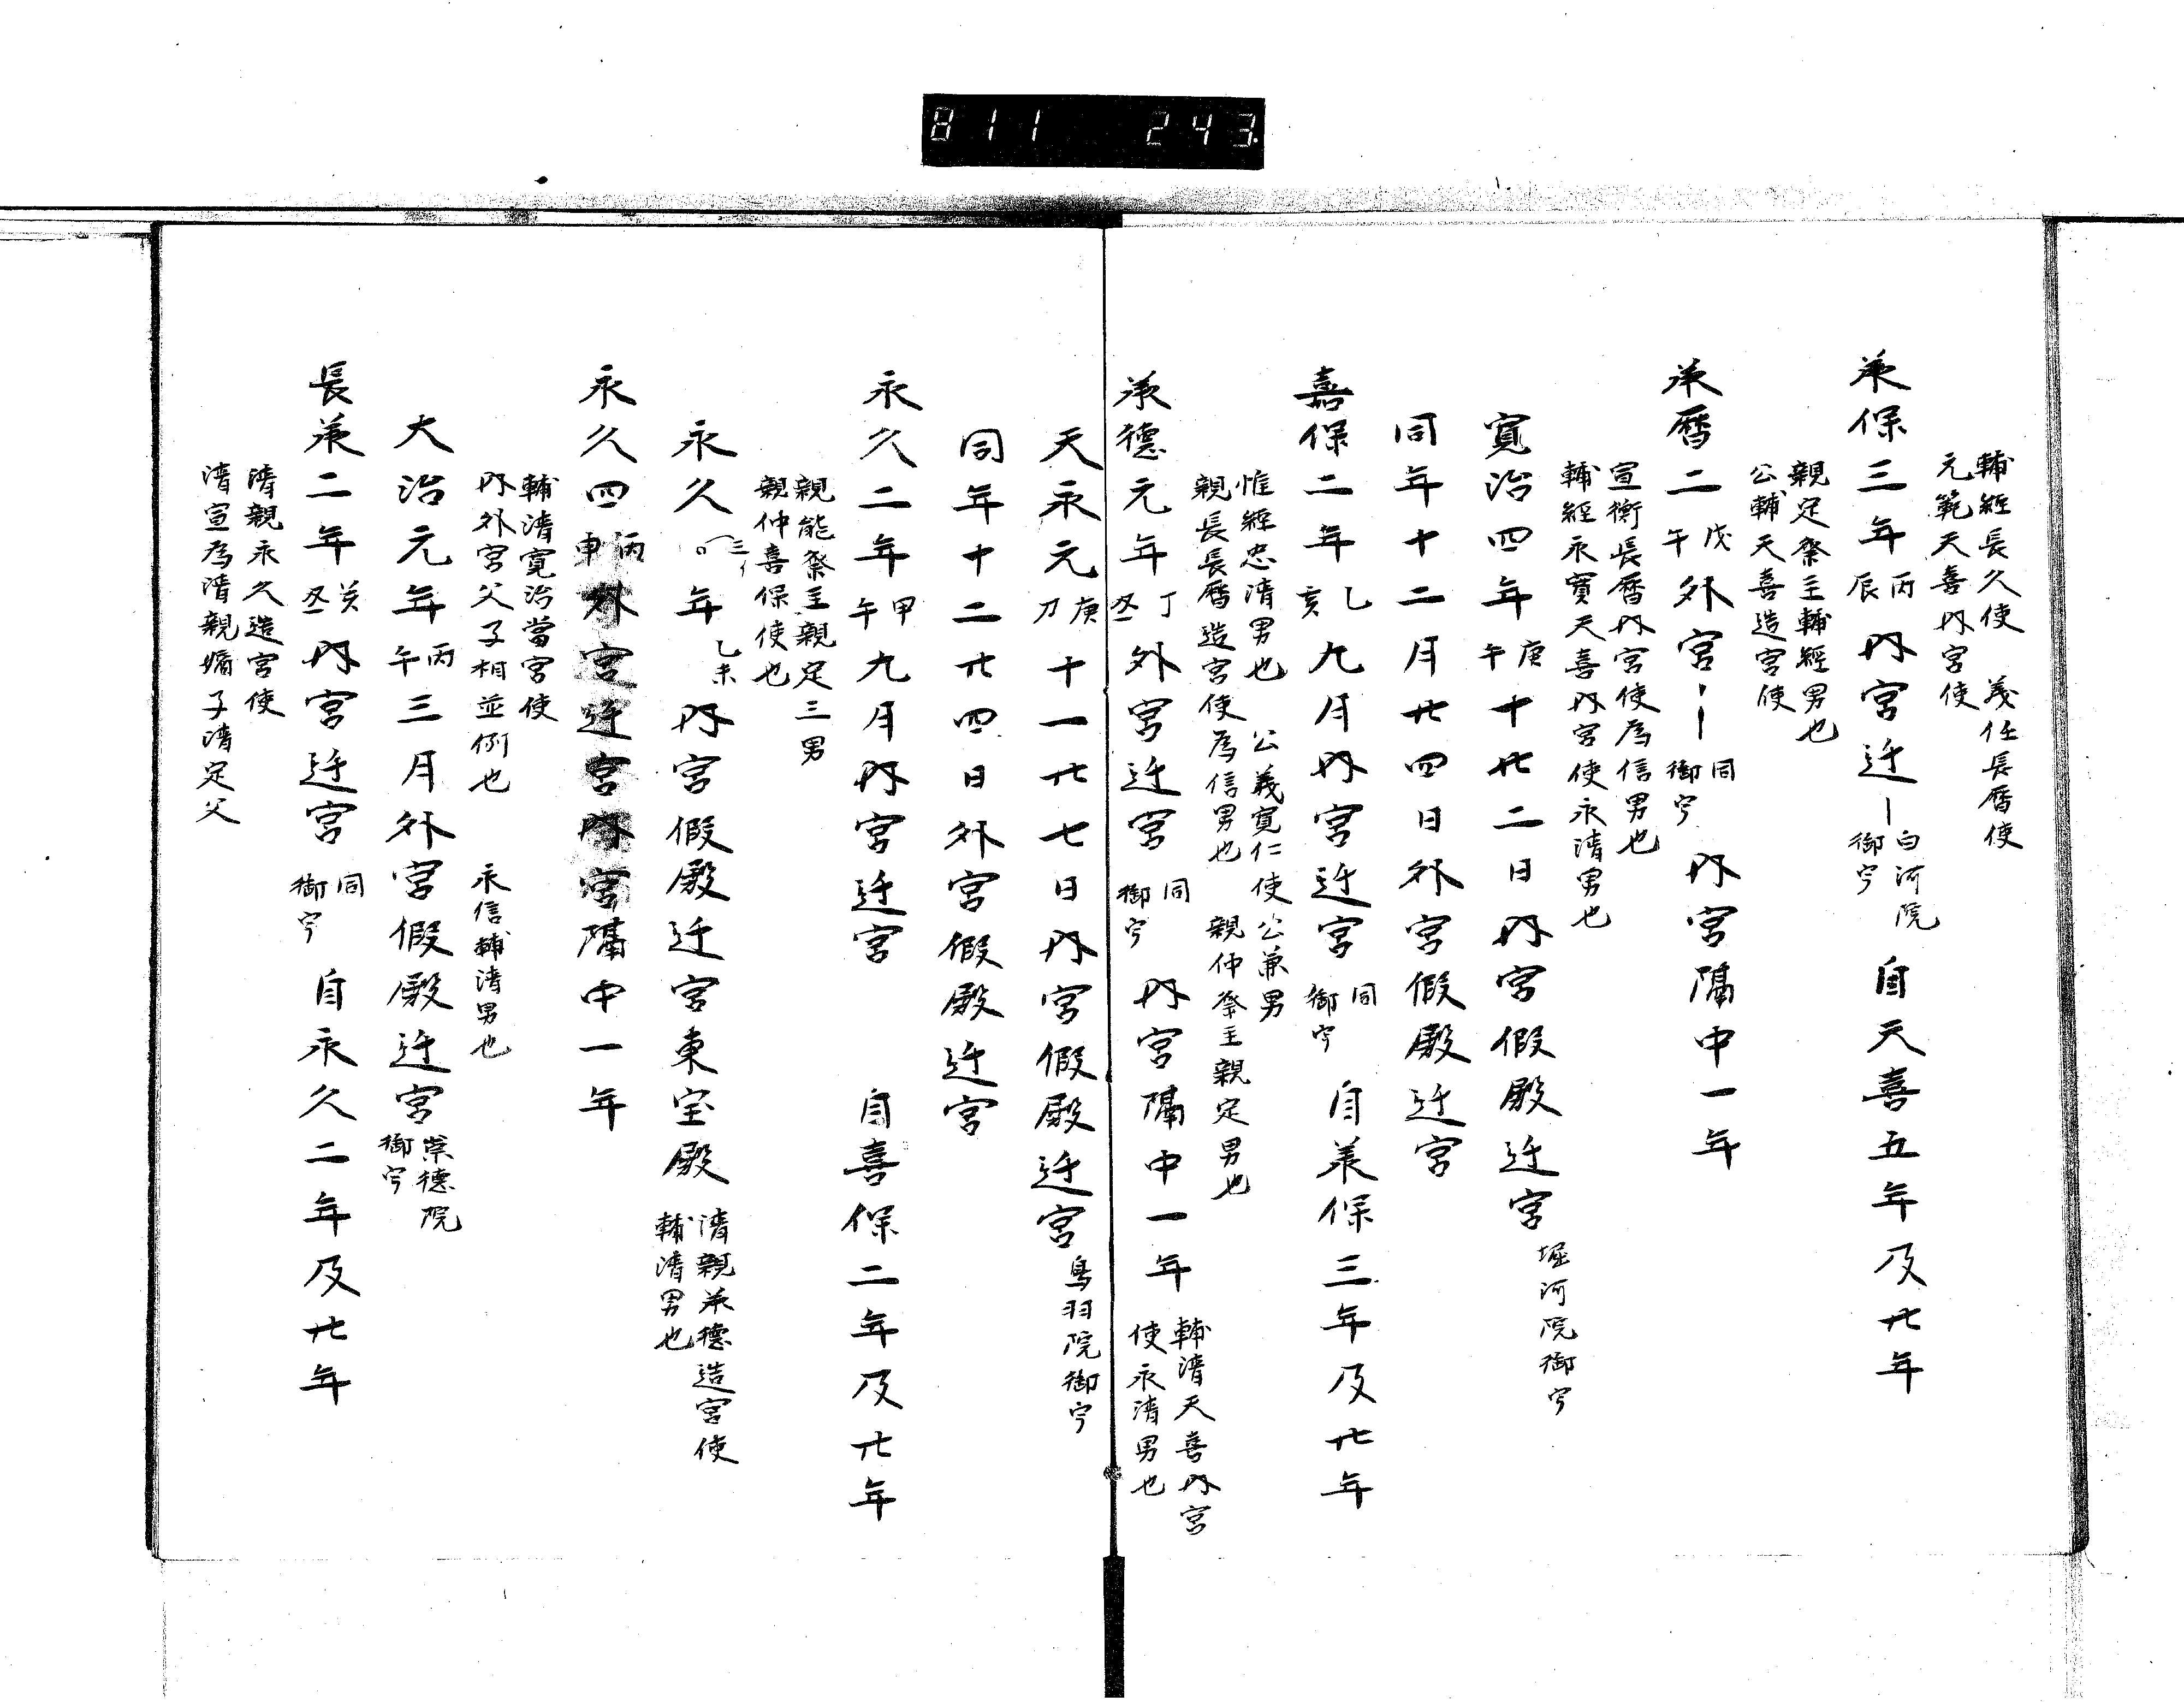 811 243
輔経長久使 義任長暦使
元範天喜内宮使
承保三年丙辰内宮迁ー白河院御宇 自天喜五年及廿年
親定祭主輔経男也
公輔天喜造宮使
承暦二戊午外宮ーー同御宇 内宮隔中一年
宣衡長暦内宮使為信男也
輔経永寛天喜内宮使永清男也
寛治四年庚午十廿二日内宮假殿迁宮堀河院御宇
同年十二月廿四日外宮假殿迁宮
嘉保二年乙亥九月内宮迁宮同御宇 自承保三年及廿年
惟経忠清男也 公義寛仁使公兼男
親長長暦造宮使為信男也 親仲祭主親定男也
承德元年丁丑外宮迁宮同御宇 内宮隔中一年
輔清天喜内宮
使永清男也
天永元庚刀十一廿七日内宮假殿迁宮鳥羽院御宇
同年十二廿四日外宮假殿迁宮
永久二年甲午九月内宮迁宮 自喜保二年及廿年
親能祭主親定三男
親仲喜保使也
永久〇三イ年乙未内宮假殿迁宮東宝殿
清親承德造宮使
輔清男也
永久四丙申外宮迁宮内宮隔中一年
輔清寛治當宮使
内外宮父子相並例也 永信輔清男也
大治元年丙午三月外宮假殿迁宮崇德院御宇
長承二年癸丑内宮迁宮同御宇 自永久二年及廿年
清親永久造宮使
清宣為清親嫡子清定父